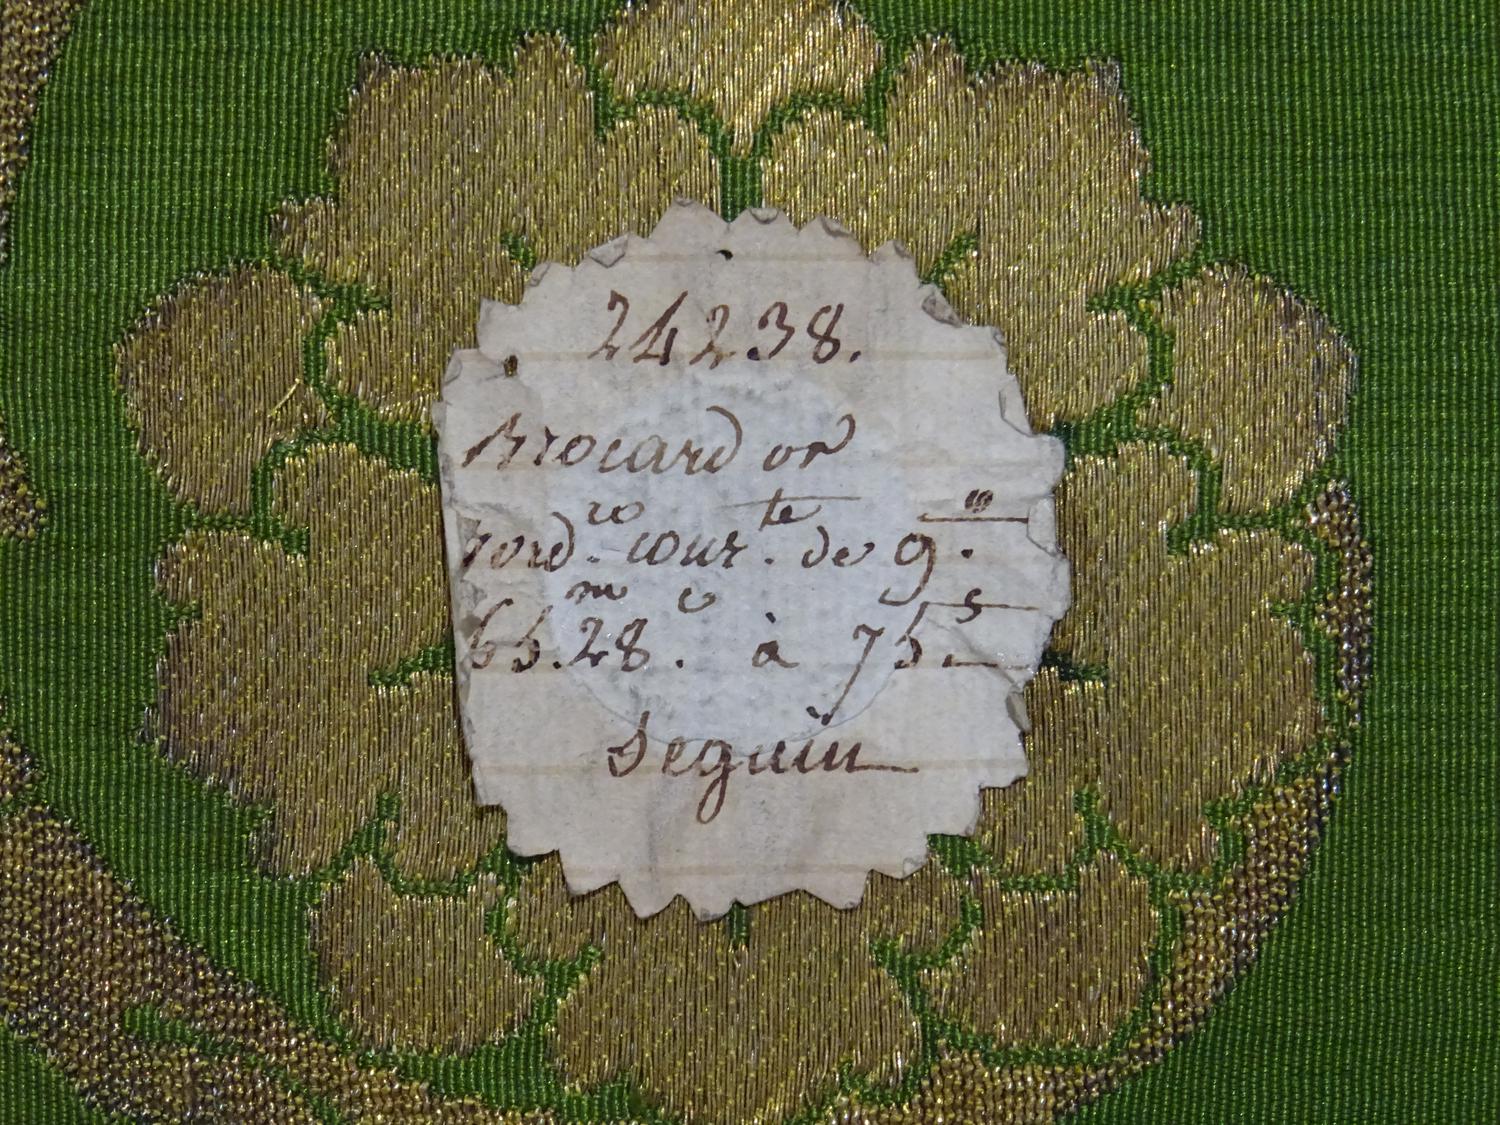 24238.
Brocard or
bord. co cour. te de 9. 10
66.28. m c à 75. s
Seguin